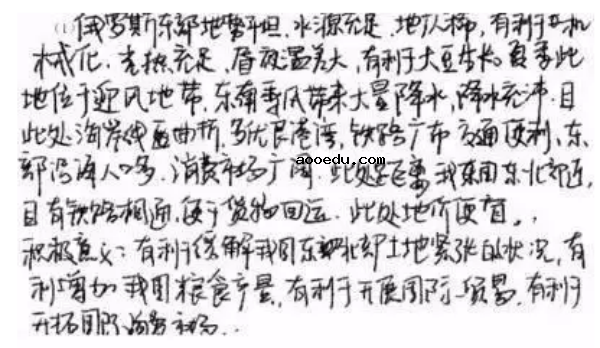 (1)俄罗斯东部地势平坦,水源充足,地广人稀,有利于机
械化,光热充足,昼夜温差大,有利于大豆生长,夏季此
地位于迎风地带,东南季风带来大量降水,降水充沛,且
此处海岸线曲折,多优良港湾,铁路广布,交通便利,东
部沿海人口多,消费市场广阔.此处距离我国东北部近,
aooedu.com
且有铁路相通,便于货物回运.此处地价便宜.
积极意义:有利于缓解我国东北部土地紧张的状况,有
利增加我国粮食产量,有利于开展国际贸易,有利于
开拓国际市场..